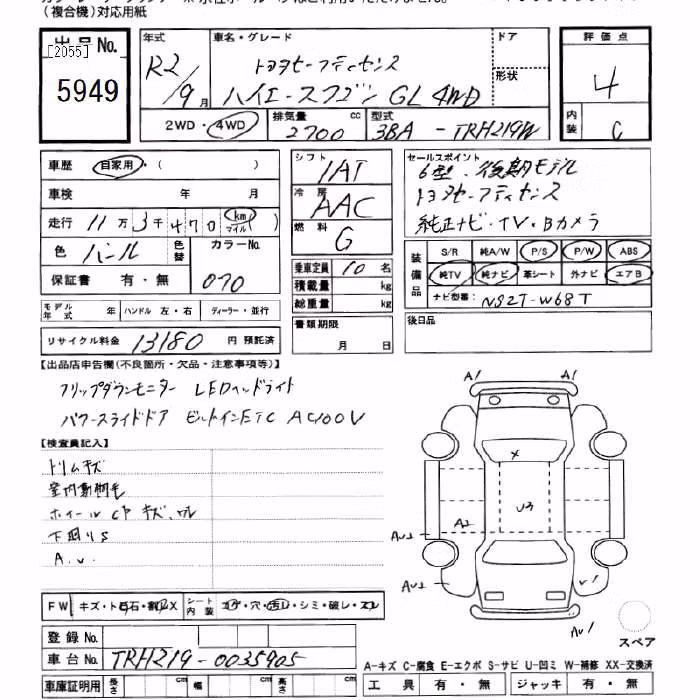 (複合機)対応用紙
出品 No.
[2055]
5949
年式 R2/9月
車名・グレード
トヨタセーフティセンス
ハイエースワゴン GL 4WD
ドア
形状
2WD・4WD
排気量 2700 cc
型式 3BA - TRH219W
評価点
4
内装 C
車歴 自家用・( )
車検 年 月
走行 11万3千470 km マイル
色 パール 色替 カラーNo. 070
保証書 有・無
モデル年式 年 ハンドル 左・右 ディーラー・並行
リサイクル料金 13180 円 預託済
シフト IAT
冷房 AAC
燃料 G
乗車定員 10 名
積載量 kg
総重量 kg
書類期限
月 日
セールスポイント
6型、後期モデル
トヨタセーフティセンス
純正ナビ・TV・Bカメラ
装備品
S/R 純A/W P/S P/W ABS
純TV 純ナビ 革シート 外ナビ エアB
ナビ型番: NSZT-W68T
後日品
【出品店申告欄(不良箇所・欠品・注意事項等)】
フリップダウンモニター LEDヘッドライト
パワースライドドア ビルトインETC AC100V
【検査員記入】
トリムキズ
室内動物毛
ホイールCP キズ、ワレ
下回りS
A.U.
FW キズ・ト石・割レX
シート内装 コゲ・穴・汚レ・シミ・破レ・スレ
登録 No.
車台 No. TRH219-0035905
車庫証明用 長さ cm 幅 cm 高さ cm
A1
A1
X
U3
A2
AU2
AU2
U1
AU1
スペア
A-キズ C-腐食 E-エクボ S-サビ U-凹ミ W-補修 XX-交換済
工具 有・無 ジャッキ 有・無